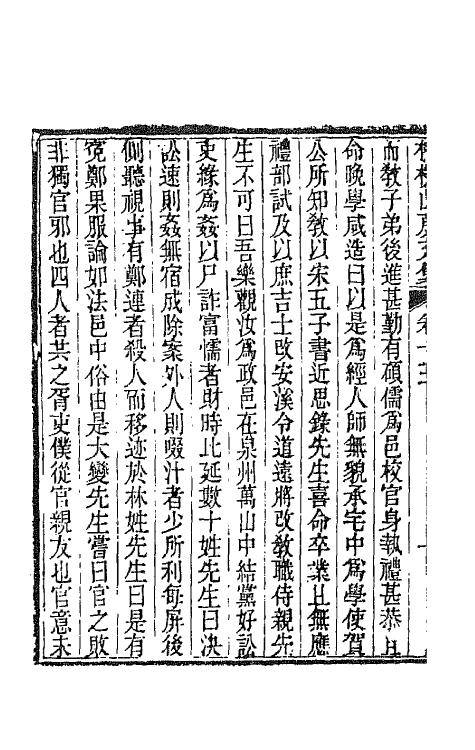 而教子弟後進甚勤有碩儒爲邑校官身執禮甚恭且
命晚學咸造曰以是爲經人師無貌承宅中爲學使賀
公所知敎以宋五子書近思錄先生喜命卒業且無應
禮部試及以庶吉士改安溪令道遠將改敎職侍親先
生不可曰吾樂觀汝爲政邑在泉州萬山中結黨好訟
吏緣爲姦以尸詐富懦者財時比延數十姓先生曰決
訟速則姦無宿成除案外人則啜汁者少所利每屏後
側聽視事有鄭連者殺人而移迹於林姓先生曰是有
冤鄭果服論如法邑中俗由是大變先生嘗曰官之敗
非獨官邪也四人者共之胥吏僕從官親友也官意未